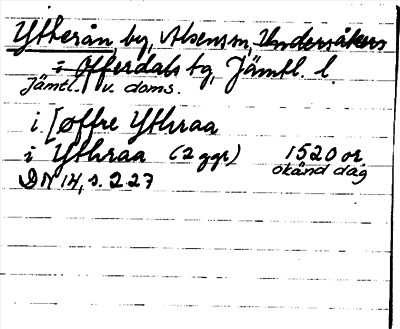 Ytterån, by, Alsens sn, Undersåkers
o Offerdals tg, Jämtl. l.
Jämtl. v. doms.
i [øffre Ythraa
i Ythraa (2 ggr) 1520 or
okänd dag
DN 14, s. 227